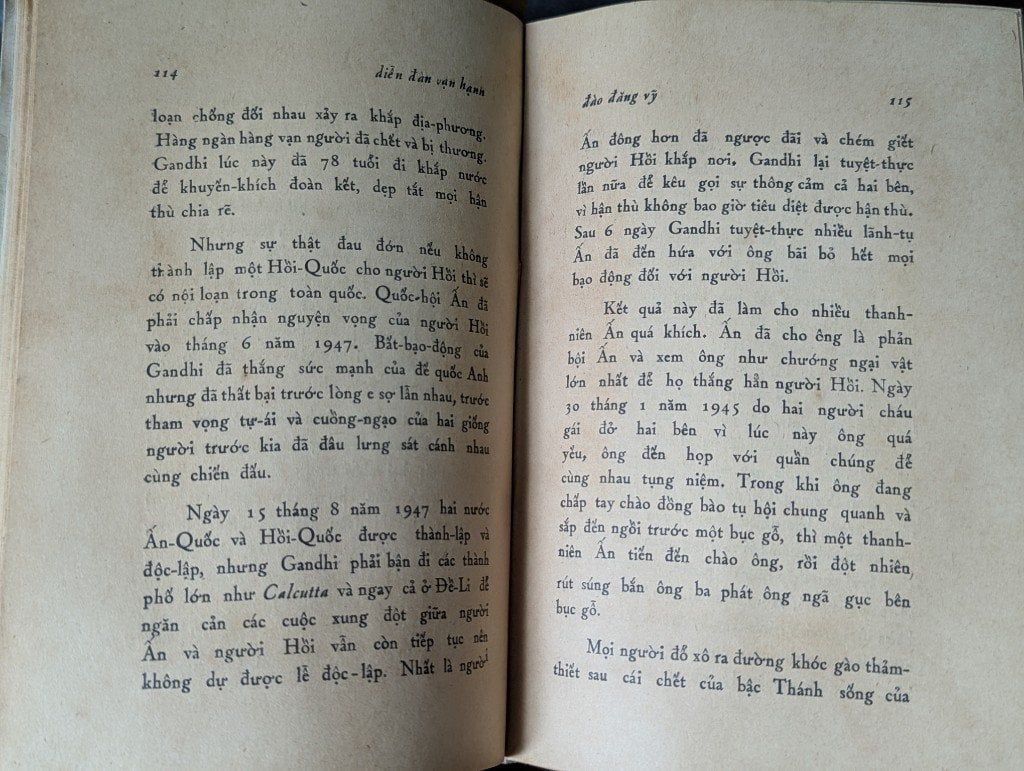 114 diễn đàn vạn hạnh
loạn chống đối nhau xảy ra khắp địa-phương.
Hàng ngàn hàng vạn người đã chết và bị thương.
Gandhi lúc này đã 78 tuổi đi khắp nước
để khuyến-khích đoàn kết, dẹp tắt mọi hận
thù chia rẽ.
Nhưng sự thật đau đớn nếu không
thành lập một Hồi-Quốc cho người Hồi thì sẽ
có nội loạn trong toàn quốc. Quốc-hội Ấn đã
phải chấp nhận nguyện vọng của người Hồi
vào tháng 6 năm 1947. Bất-bạo-động của
Gandhi đã thắng sức mạnh của đế quốc Anh
nhưng đã thất bại trước lòng e sợ lẫn nhau, trước
tham vọng tự-ái và cuồng-ngạo của hai giống
người trước kia đã đâu lưng sát cánh nhau
cùng chiến đấu.
Ngày 15 tháng 8 năm 1947 hai nước
Ấn-Quốc và Hồi-Quốc được thành-lập và
độc-lập, nhưng Gandhi phải bận đi các thành
phố lớn như Calcutta và ngay cả ở Đề-Li để
ngăn cản các cuộc xung đột giữa người
Ấn và người Hồi vẫn còn tiếp tục nên
không dự được lễ độc-lập. Nhất là người
đào đăng vỹ 115
Ấn đông hơn đã ngược đãi và chém giết
người Hồi khắp nơi. Gandhi lại tuyệt-thực
lần nữa để kêu gọi sự thông cảm cả hai bên,
vì hận thù không bao giờ tiêu diệt được hận thù.
Sau 6 ngày Gandhi tuyệt-thực nhiều lãnh-tụ
Ấn đã đến hứa với ông bãi bỏ hết mọi
bạo động đối với người Hồi.
Kết quả này đã làm cho nhiều thanh-
niên Ấn quá khích. Ấn đã cho ông là phản
bội Ấn và xem ông như chướng ngại vật
lớn nhất để họ thắng hẳn người Hồi. Ngày
30 tháng 1 năm 1945 do hai người cháu
gái đở hai bên vì lúc này ông quá
yếu, ông đến họp với quần chúng để
cùng nhau tụng niệm. Trong khi ông đang
chắp tay chào đồng bào tụ hội chung quanh và
sắp đến ngồi trước một bục gỗ, thì một thanh-
niên Ấn tiến đến chào ông, rồi đột nhiên
rút súng bắn ông ba phát ông ngã gục bên
bục gỗ.
Mọi người đổ xô ra đường khóc gào thảm-
thiết sau cái chết của bậc Thánh sống của